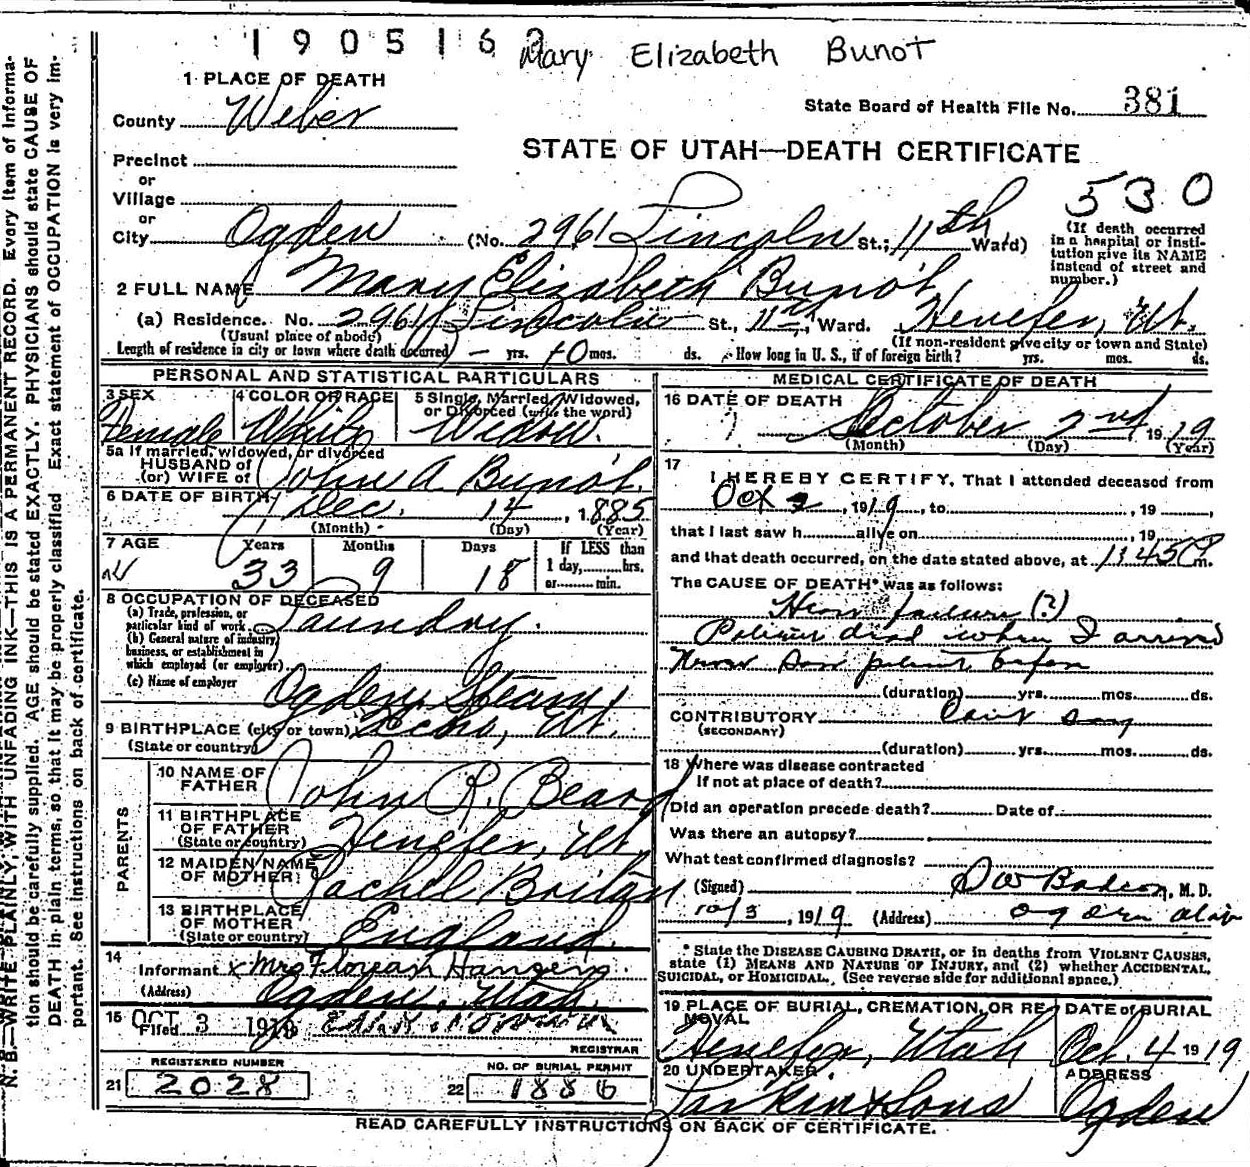 1905162
Mary Elizabeth Bunot
1 PLACE OF DEATH
State Board of Health File No. 381
County Weber
STATE OF UTAH—DEATH CERTIFICATE
Precinct
or
Village
530
or
City Ogden (No. 2961 Lincoln St.; 11th Ward)
(If death occurred in a hospital or institution give its NAME instead of street and number.)
2 FULL NAME Mary Elizabeth Bunot
(a) Residence. No. 2961 Lincoln St., 11th, Ward. Henefer, Ut.
(Usual place of abode) (If non-resident give city or town and State)
Length of residence in city or town where death occurred — yrs. 10 mos. ds. How long in U. S., if of foreign birth? yrs. mos. ds.
PERSONAL AND STATISTICAL PARTICULARS
3 SEX 4 COLOR OR RACE 5 Single, Married, Widowed, or Divorced (write the word)
Female White Widow.
5a If married, widowed, or divorced
HUSBAND of
(or) WIFE of John A Bunot.
6 DATE OF BIRTH Dec. 14, 1885
(Month) (Day) (Year)
7 AGE Years Months Days If LESS than
1 day, hrs.
or min.
33 9 18
8 OCCUPATION OF DECEASED
(a) Trade, profession, or
particular kind of work Laundry.
(b) General nature of industry,
business, or establishment in
which employed (or employer)
(c) Name of employer Ogden Steam
9 BIRTHPLACE (city or town) Echo, Ut.
(State or country)
PARENTS
10 NAME OF
FATHER John R. Beard
11 BIRTHPLACE
OF FATHER
(State or country) Henefer, Ut.
12 MAIDEN NAME
OF MOTHER Rachel
13 BIRTHPLACE
OF MOTHER
(State or country) England.
14
Informant x Mrs
(Address) Ogden, Utah.
15 OCT 3
Filed
REGISTRAR
REGISTERED NUMBER NO. OF BURIAL PERMIT
21 2028 22 1886
MEDICAL CERTIFICATE OF DEATH
16 DATE OF DEATH
October 2nd 1919
(Month) (Day) (Year)
17
I HEREBY CERTIFY, That I attended deceased from
Oct 2, 1919, to , 19 ,
that I last saw h alive on , 19
and that death occurred, on the date stated above, at 1145 P m.
The CAUSE OF DEATH* was as follows:
failure (?)
dead when I arrived
Never saw patient before
(duration) yrs. mos. ds.
CONTRIBUTORY Can't say
(SECONDARY)
(duration) yrs. mos. ds.
18 Where was disease contracted
If not at place of death?
Did an operation precede death? Date of
Was there an autopsy?
What test confirmed diagnosis?
(Signed) , M. D.
10/3, 1919 (Address) Ogden Utah
*State the DISEASE CAUSING DEATH, or in deaths from VIOLENT CAUSES,
state (1) MEANS AND NATURE OF INJURY, and (2) whether ACCIDENTAL,
SUICIDAL, or HOMICIDAL. (See reverse side for additional space.)
19 PLACE OF BURIAL, CREMATION, OR REMOVAL DATE of BURIAL
Henefer, Utah Oct. 4 1919
20 UNDERTAKER ADDRESS
Larkin & Sons Ogden
READ CAREFULLY INSTRUCTIONS ON BACK OF CERTIFICATE.
N. B.—WRITE PLAINLY, WITH UNFADING INK—THIS IS A PERMANENT RECORD. Every item of information should be carefully supplied. AGE should be stated EXACTLY. PHYSICIANS should state CAUSE OF DEATH in plain terms, so that it may be properly classified. Exact statement of OCCUPATION is very important. See instructions on back of certificate.